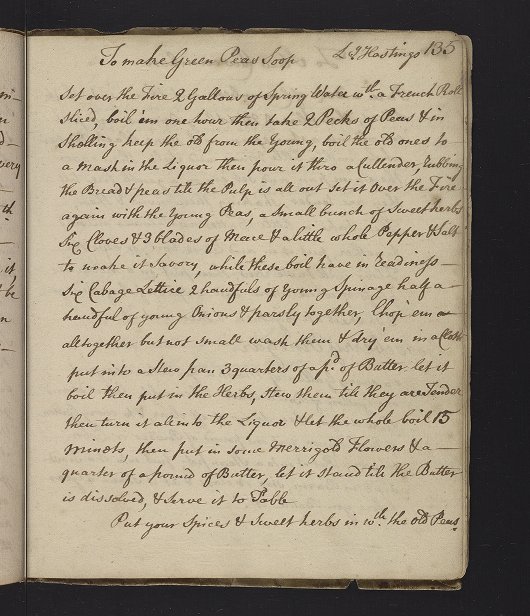 To make Green Peas Soop Ly Hastings 135
Set over the Fire 2 Gallons of Spring Water wth. a French Roll
sliced, boil 'em one hour then take 2 Pecks of Peas & in
Shelling keep the old from the Young, boil the old ones to
a mash in the Liquor then pour it thro a Cullender Rubbing
the Bread & peas till the Pulp is all out set it Over the Fire
again with the Young Peas, a small bunch of Sweet herbs
Six Cloves & 3 blades of Mace & a little whole Pepper & Salt
to make it Savory, while these boil have in readiness
Six Cabage Lettice 2 handfuls of Young Spinage half a
handful of young Onions & parsly together, Chop 'em a
altogether but not small wash them & dry 'em in a Cloth
put into a Stew pan 3 quarters of a pd. of Butter let it
boil then put in the Herbs, Stew them till they are Tender
then turn it al into the Liquor & let the whole boil 15
Minets, then put in some Merrigold Flowers & a
quarter of a pound of Butter, let it stand till the Butter
is dissolved, & Serve it to Table
Put your Spices & Sweet herbs in wth. the old Peas